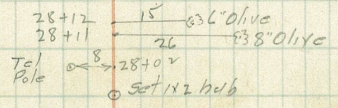 28+12 15 6" Olive
28+11 26 8" Olive
Tel Pole 8 28+02
Set 1x2 hub